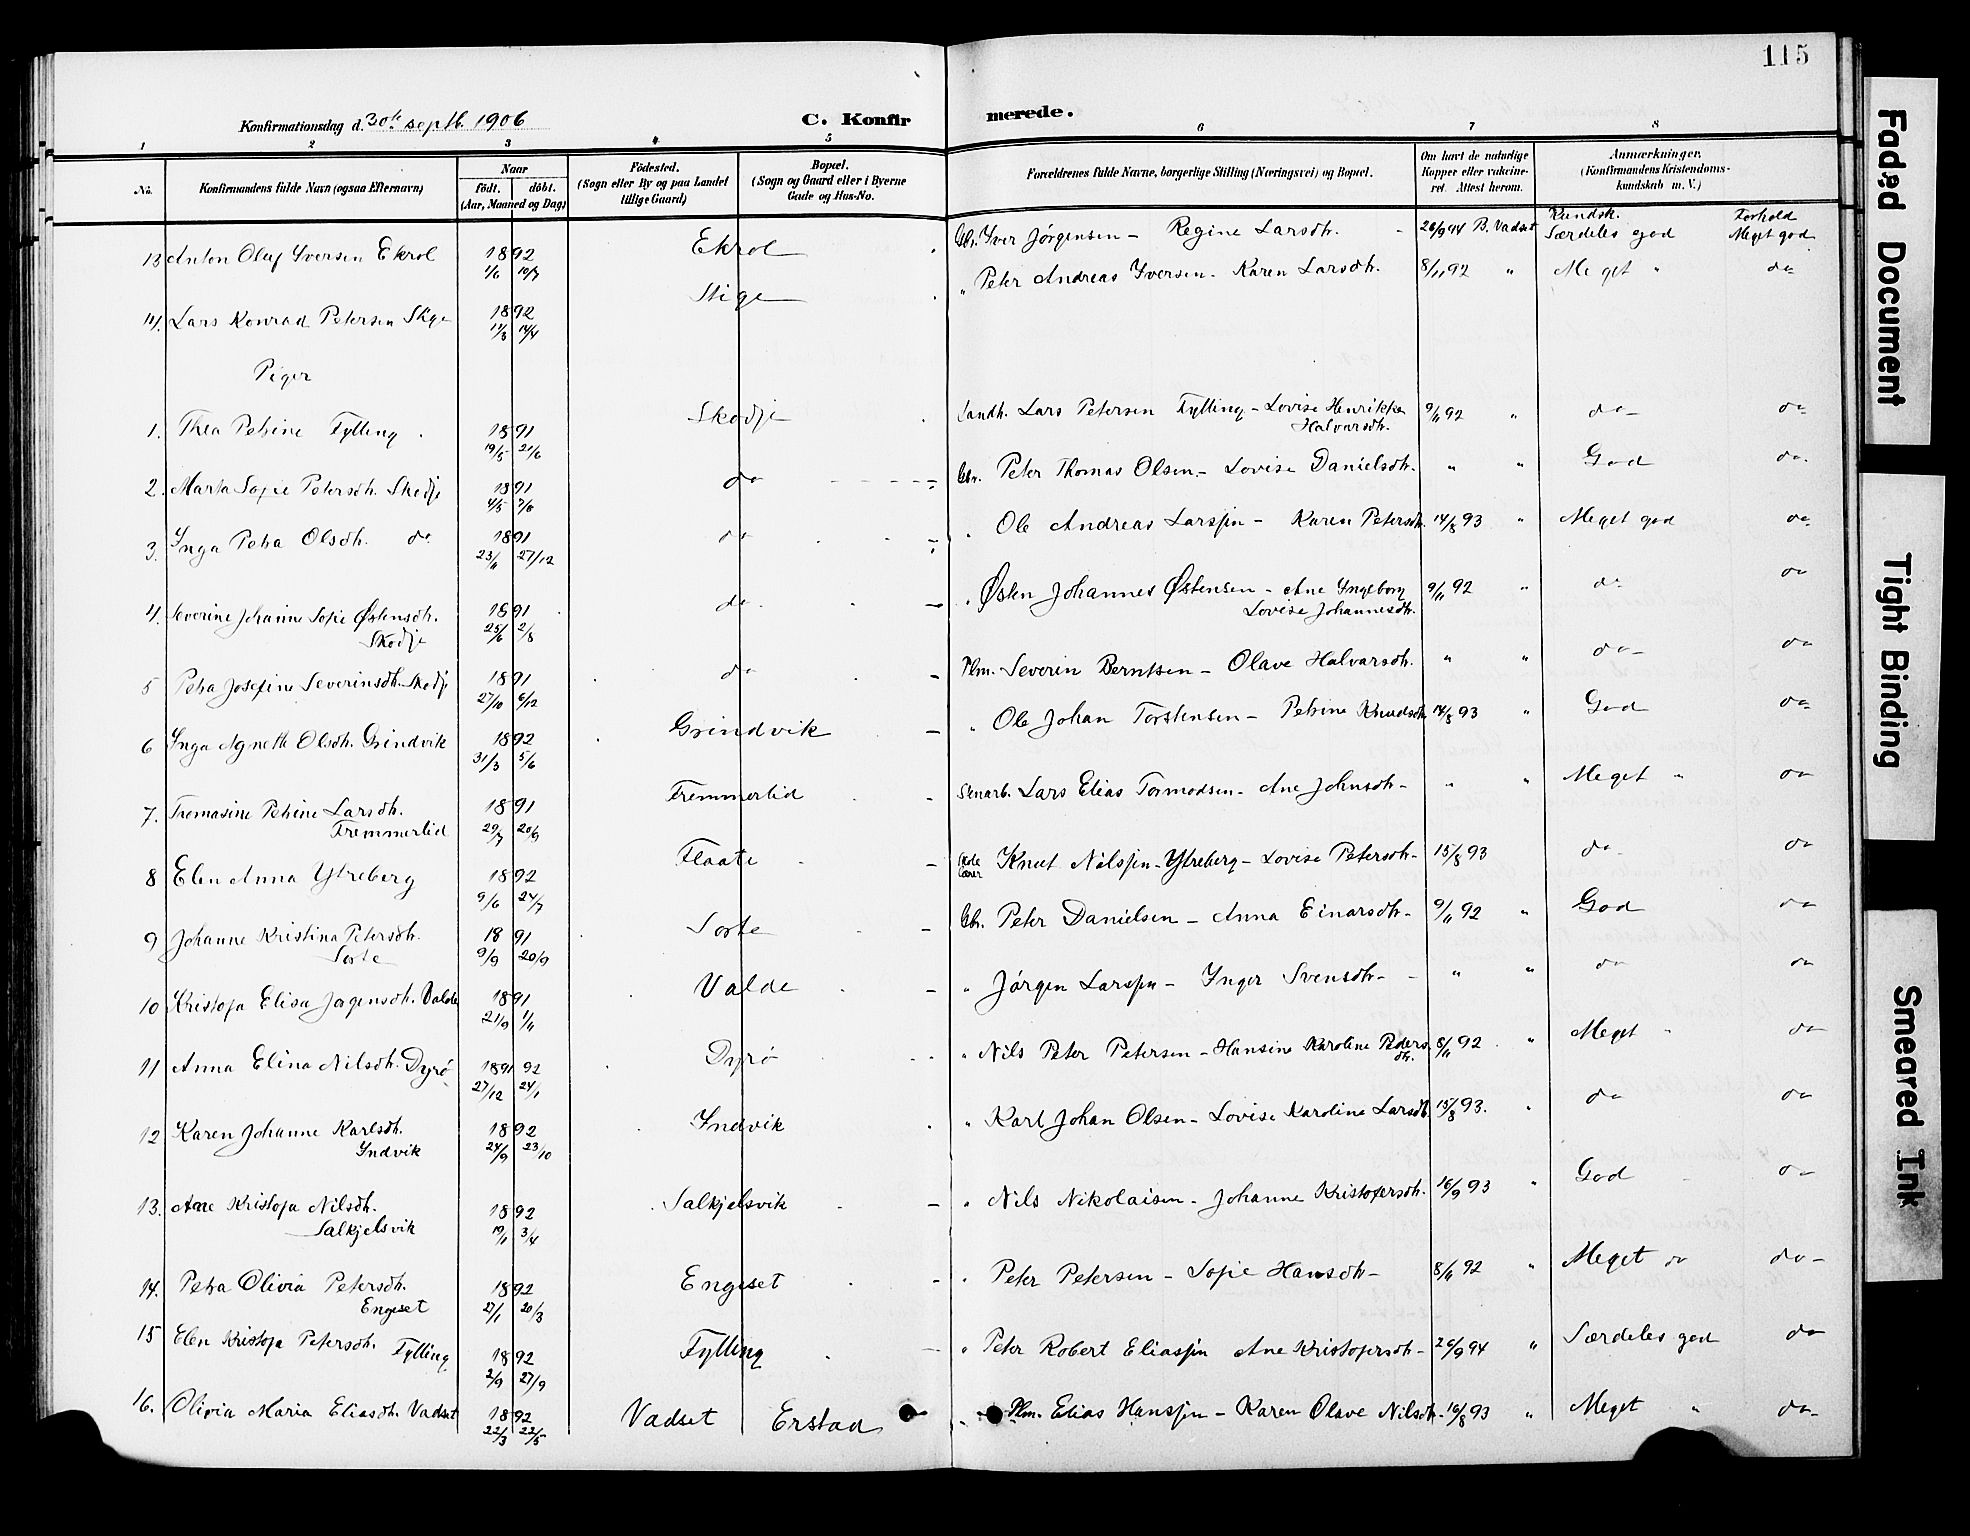 115
Konfirmationsdag d. 30te septb. 1906
C. Konfirmerede.
1 2 3 4 5 6 7 8
No. Konfirmandens fulde Navn (ogsaa Efternavn) Naar födt. döbt. (Aar, Maaned og Dag) Födested. (Sogn eller By og paa Landet tillige Gaard) Bopæl. (Sogn og Gaard eller i Byerne Gade og Hus-No. Forældrenes fulde Navne, borgerlige Stilling (Næringsvei) og Bopæl. Om havt de naturlige Kopper eller vakcineret. Attest herom. Anmærkninger. (Konfirmandens Kristendomskundskab m. V.)
Kundsk. Forhold
13 Anton Oluf Iversen Ekrol 1892 1/6 10/7 Ekrol Gbr. Iver Jörgensen - Regine Larsdtr. 26/9 94 B. Vadset Særdeles god Meget god
14. Lars Konrad Petersen Stige 1892 17/3 14/4 Stige " Peter Andreas Iversen - Karen Larsdtr. 8/11 92 " Meget " do
Piger
1. Thea Petrine Fylling 1891 19/5 21/6 Skodje Landh. Lars Petersen Fylling - Lovise Henrikke Halvarsdtr. 9/11 92 " do do
2. Marta Sofie Petersdtr. Skodje 1891 4/5 7/6 do Gbr. Peter Thomas Olsen - Lovise Danielsdtr. " " God do
3. Inga Petra Olsdtr. do 1891 23/11 27/12 do " Ole Andreas Larssen - Karen Petersdtr. 14/8 93 " Meget god do
4. Severine Johanne Sofie Østensdtr. Skodje 1891 25/6 2/8 do " Østen Johannes Østensen - Ane Ingeborg Lovise Johannesdtr. 9/11 92 " do do
5 Petra Josefine Severinsdtr. Skodje 1891 27/10 6/12 do Plm. Severin Berntsen - Olave Halvarsdtr. " " do do
6 Inga Agnette Olsdtr. Grindvik 1892 31/3 5/6 Grindvik " Ole Johan Torstensen - Petrine Knudsdtr 14/8 93 " God do
7. Tomasine Petrine Larsdtr. Fremmerlid 1891 29/7 20/9 Fremmerlid Stenarb. Lars Elias Tormodsen - Ane Johnsdtr - " " Meget " do
8 Elen Anna Ytreberg 1892 9/6 24/7 Flaate Skolelærer Knut Nilssen Ytreberg - Lovise Petersdtr - 15/8 93 do do
9 Johanne Kristina Petersdtr. Sorte 1891 9/9 20/9 Sorte Gbr. Peter Danielsen - Anna Einarsdtr - 9/11 92 " God do
10 Kristofa Elisa Jørgensdtr. Valde 1891 21/9 1/11 Valde " Jörgen Larssen - Inger Svensdtr - " " do do
11 Anna Elina Nilsdtr. Dyrö 1891 92 27/12 24/1 Dyrö " Nils Peter Petersen - Hansine Karoline Pedersdtr. 8/11 92 " Meget " do
12 Karen Johanne Karlsdtr. Indvik 1892 24/9 23/10 Indvik " Karl Johan Olsen - Lovise Karoline Larsdtr. 15/8 93. " do do
13. Ane Kristofa Nilsdtr. Salkjelsvik 1892 19/1 3/4 Salkjelsvik " Nils Nikolaisen - Johanne Kristofersdtr. 16/9 93 " God do
14. Petra Olivia Petersdtr. Engeset 1892 27/1 20/3 Engeset " Peter Petersen - Sofie Hansdtr - 8/11 92 " Meget do do
15 Elen Kristofa Petersdtr. Fylling 1892 2/9 27/9 Fylling " Peter Robert Eliassen Ane Kristofersdtr - 26/9 94 " Særdeles god do
16. Olivia Maria Eliasdtr. Vadset 1892 22/3 22/5 Vadset Erstad Plm. Elias Hanssen - Karen Olave Nilsdtr - 16/8 93 " Meget " do
Faded Document
Tight Binding
Smeared Ink